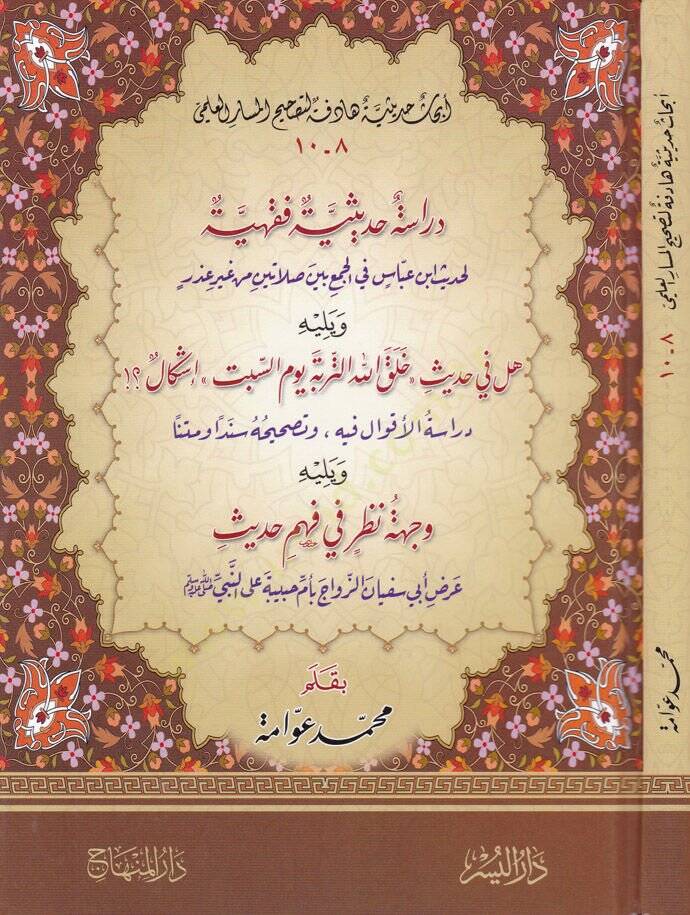 أبحاث حديثيَّة هادفة لتصحيح المسار العلمي
٨ - ١٠
دراسةٌ حديثيَّةٌ فقهيَّةٌ
لحديث ابن عبّاس في الجمع بين صلاتين من غير عذرٍ
وَيَلِيْهِ
هل في حديثِ «خَلَقَ اللهُ التربةَ يوم السّبت» إشكالٌ ؟!
دراسةُ الأقوال فيه ، وتصحيحُهُ سندًا ومتنًا
وَيَلِيْهِ
وجهةُ نظرٍ في فهمِ حديثِ
عَرضِ أبي سفيان الزواجَ بأم حبيبة على النَّبيِّ ﷺ
بقلم
محمّد عوّامة
دَارُ اليُسْر
دَارُ المِنْهَاج
أبحاث حديثية هادفة لتصحيح المسار العلمي
٨ - ١٠
محمّد عوّامة